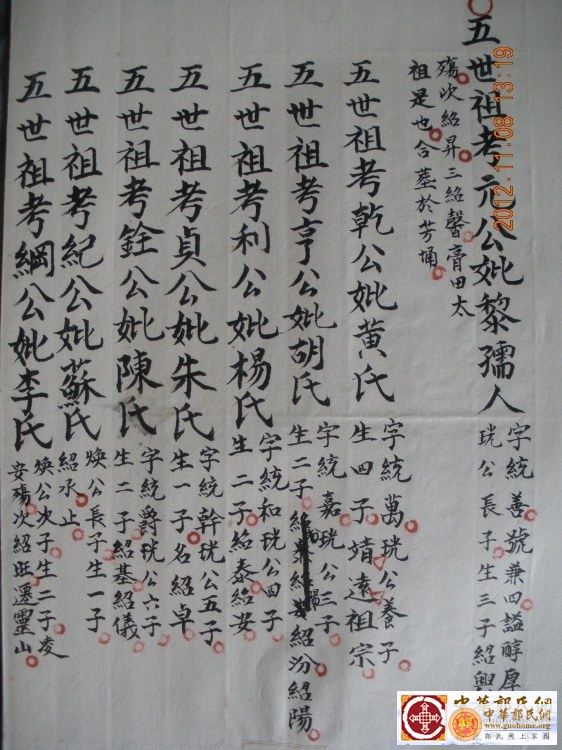 五世祖考元公妣黎孺人
字統善號兼四謚醇厚
珖公長子生三子紹興
殤次紹昇三紹馨膏田太
祖是也合墓於芳埇
五世祖考乾公妣黃氏
字統萬珖公養子
生四子靖遠祖宗
五世祖考亨公妣胡氏
字統嘉珖公三子
生二子紹汾紹陽
五世祖考利公妣楊氏
字統和珖公四子
生二子紹泰紹安
五世祖考貞公妣朱氏
字統幹珖公五子
生一子名紹卓
五世祖考銓公妣陳氏
字統爵珖公六子
生二子紹基紹儀
五世祖考紀公妣蘇氏
煥公長子生一子
紹承止
五世祖考綱公妣李氏
煥公次子生二子凌
安殤次紹旺遷靈山
2012.11.08 13:19
中華郭氏網
中華郭氏網
www.guohome.org
郭氏網上家園